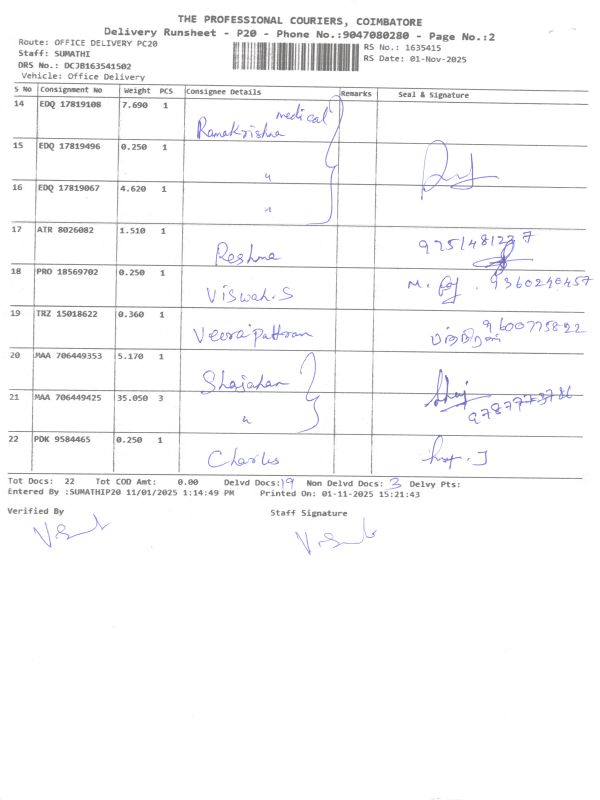 THE PROFESSIONAL COURIERS, COIMBATORE
Delivery Runsheet - P20 - Phone No.:9047080280 - Page No.:2
Route: OFFICE DELIVERY PC20
Staff: SUMATHI
DRS No.: DCJB163541502
Vehicle: Office Delivery
RS No.: 1635415
RS Date: 01-Nov-2025
S No Consignment No Weight PCS Consignee Details Remarks Seal & Signature
14 EDQ 17819108 7.690 1 Ramakrishna medical
15 EDQ 17819496 0.250 1 "
16 EDQ 17819067 4.620 1 "
17 ATR 8026082 1.510 1 Reshma
18 PRO 18569702 0.250 1 Viswah.S 9360240457
19 TRZ 15018622 0.360 1 Veerapattran 9600775822
20 MAA 706449353 5.170 1 Shajahan
21 MAA 706449425 35.050 3 "
22 PDK 9584465 0.250 1 Charles
Tot Docs: 22 Tot COD Amt: 0.00 Delvd Docs:19 Non Delvd Docs: 3 Delvy Pts:
Entered By :SUMATHIP20 11/01/2025 1:14:49 PM Printed On: 01-11-2025 15:21:43
Verified By Staff Signature